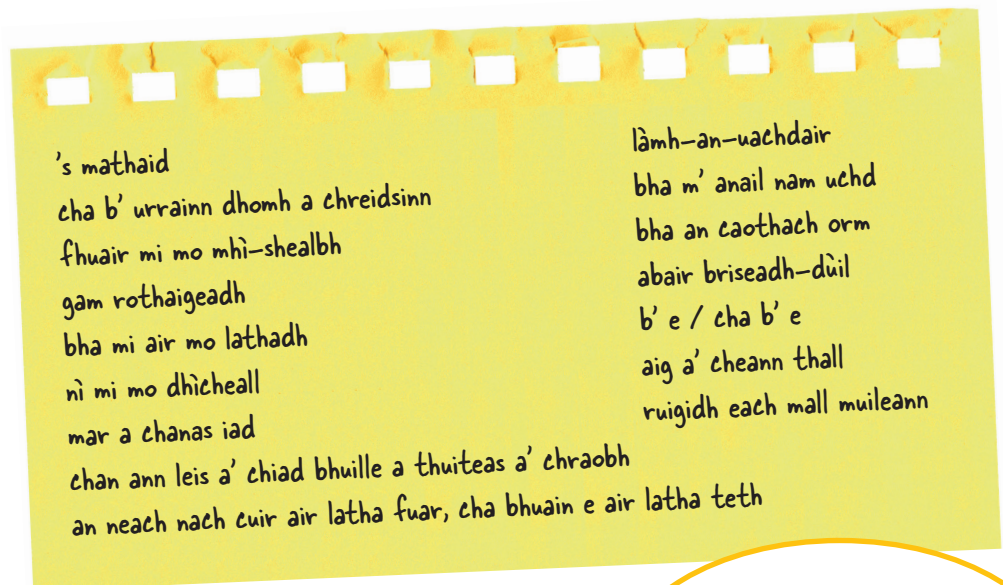 's mathaid
cha b' urrainn dhomh a chreidsinn
fhuair mi mo mhì-shealbh
gam rothaigeadh
bha mi air mo lathadh
nì mi mo dhìcheall
mar a chanas iad
chan ann leis a' chiad bhuille a thuiteas a' chraobh
an neach nach cuir air latha fuar, cha bhuain e air latha teth
làmh-an-uachdair
bha m' anail nam uchd
bha an caothach orm
abair briseadh-dùil
b' e / cha b' e
aig a' cheann thall
ruigidh each mall muileann